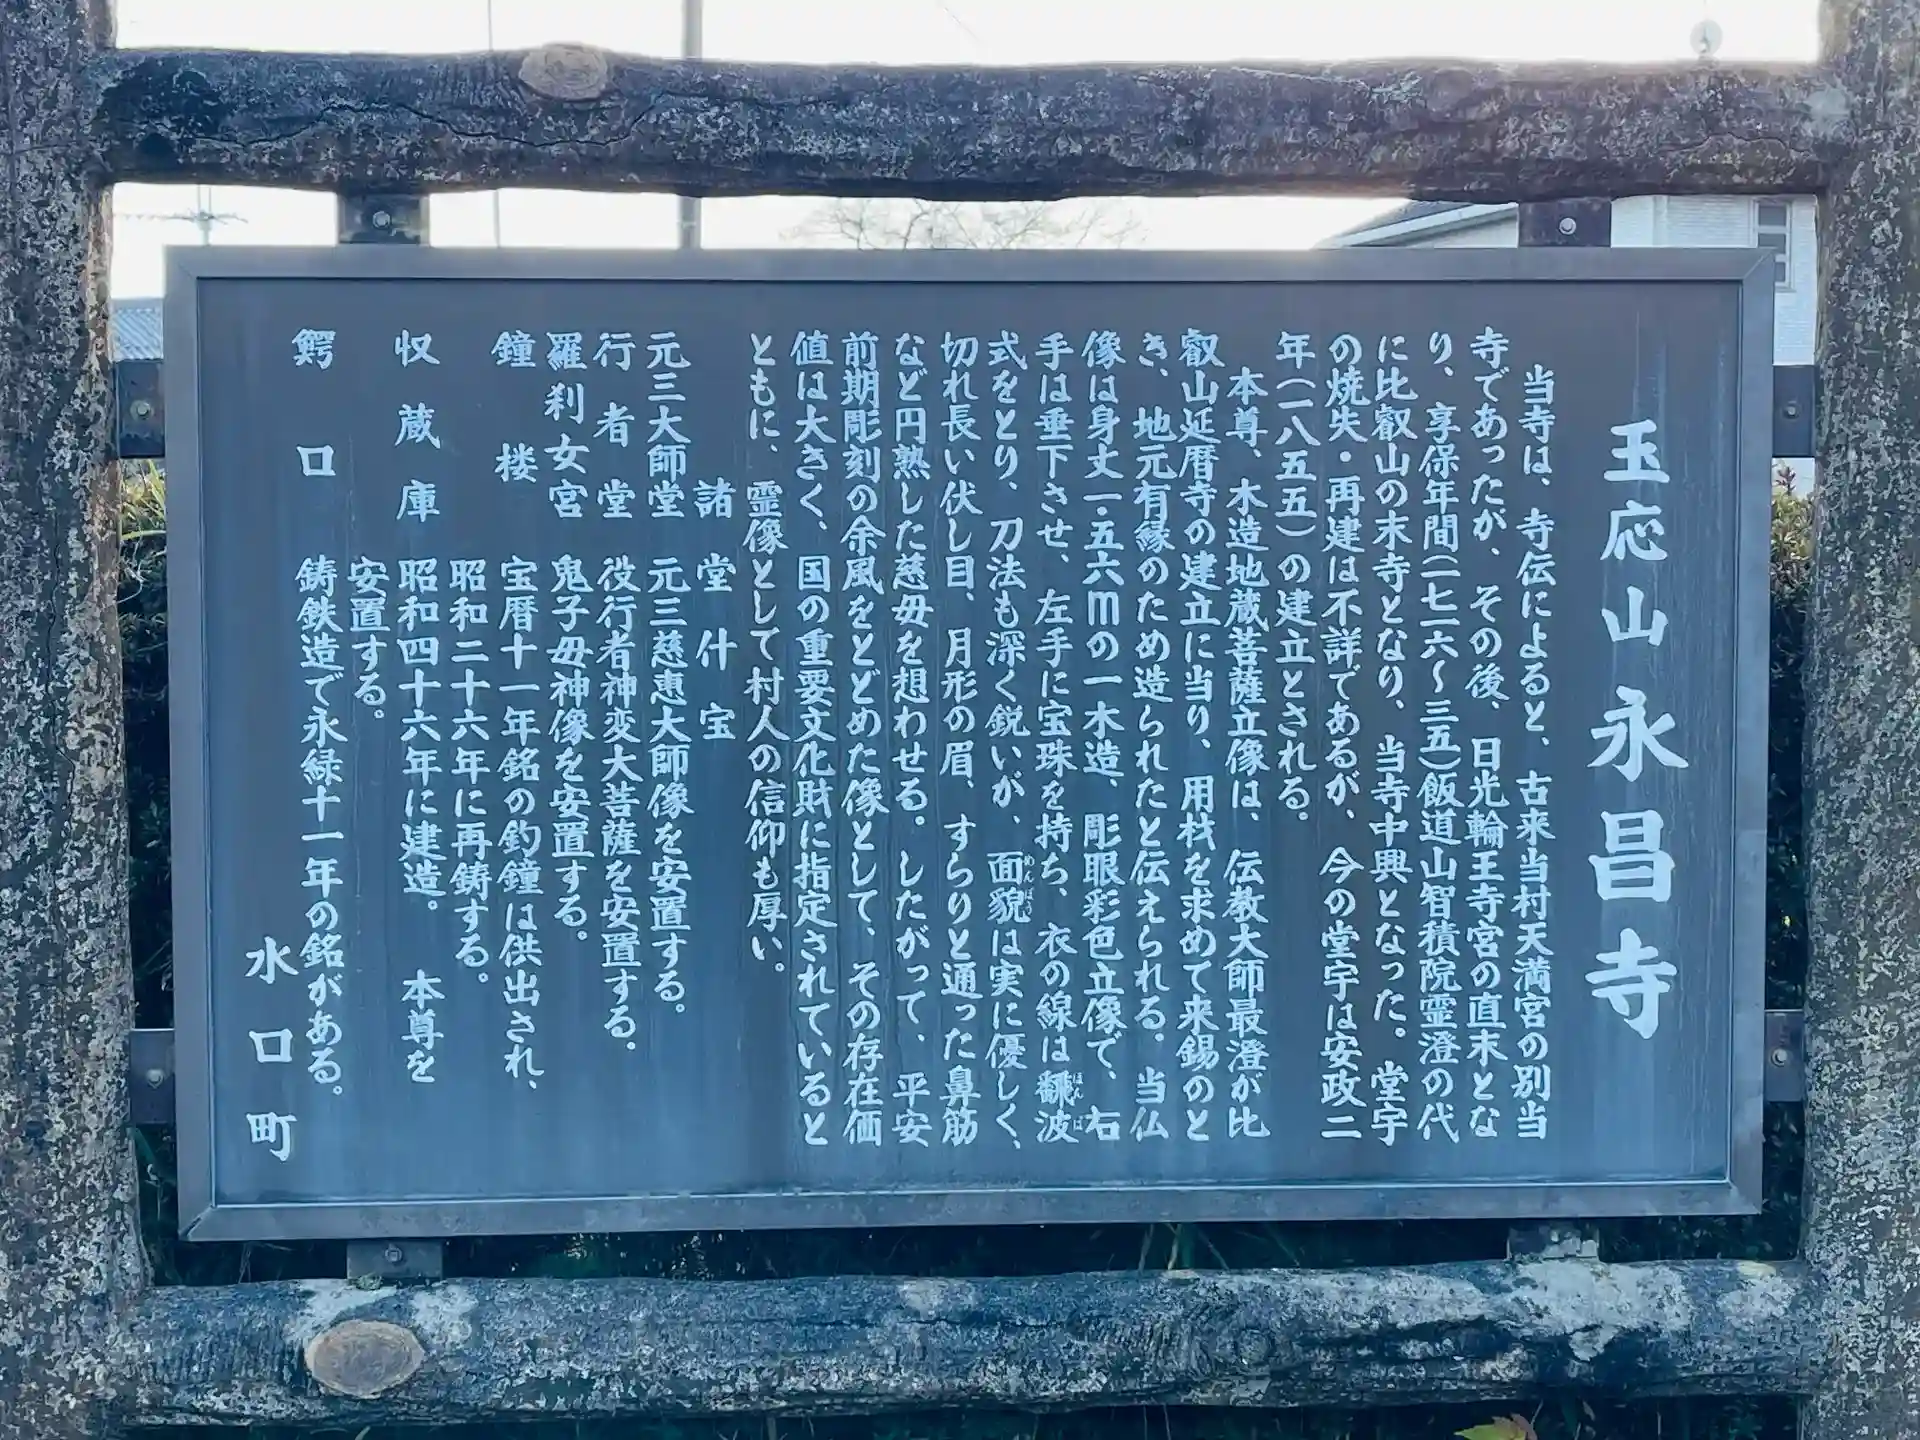 玉応山永昌寺
当寺は、寺伝によると、古来当村天満宮の別当
寺であったが、その後、日光輪王寺宮の直末とな
り、享保年間(一七一六〜三五)飯道山智積院霊澄の代
に比叡山の末寺となり、当寺中興となった。堂宇
の焼失・再建は不詳であるが、今の堂宇は安政二
年(一八五五)の建立とされる。
本尊、木造地蔵菩薩立像は、伝教大師最澄が比
叡山延暦寺の建立に当り、用材を求めて来錫のと
き、地元有縁のため造られたと伝えられる。当仏
像は身丈一・五六mの一木造、彫眼彩色立像で、右
手は垂下させ、左手に宝珠を持ち、衣の線は飜波
式をとり、刀法も深く鋭いが、面貌は実に優しく、
切れ長い伏し目、月形の眉、すらりと通った鼻筋
など円熟した慈母を想わせる。したがって、平安
前期彫刻の余風をとどめた像として、その存在価
値は大きく、国の重要文化財に指定されていると
ともに、霊像として村人の信仰も厚い。
諸堂什宝
元三大師堂 元三慈恵大師像を安置する。
行者堂 役行者神変大菩薩を安置する。
羅刹女宮 鬼子母神像を安置する。
鐘楼 宝暦十一年銘の釣鐘は供出され、
昭和二十六年に再鋳する。
収蔵庫 昭和四十六年に建造。 本尊を
安置する。
鰐口 鋳鉄造で永緑十一年の銘がある。
水口町